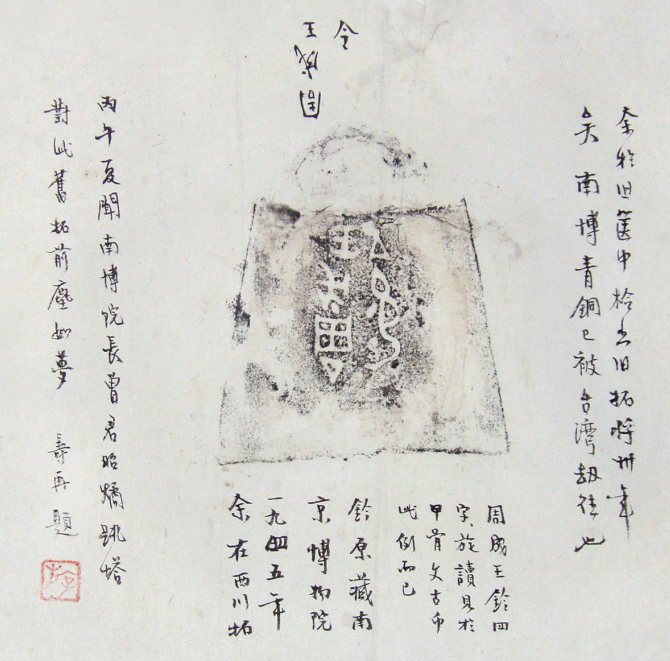 令
王
余於旧箧中檢出旧拓将卅年
矣南博青銅已被台湾劫往也
周成王鈴四
字旋讀見於
甲骨文古币
此例而已
鈴原藏南
京博物院
一九四五年
余在西川拓
丙午夏聞南博院長曾君昭燏跳塔
對此舊拓前塵如夢 壽再題